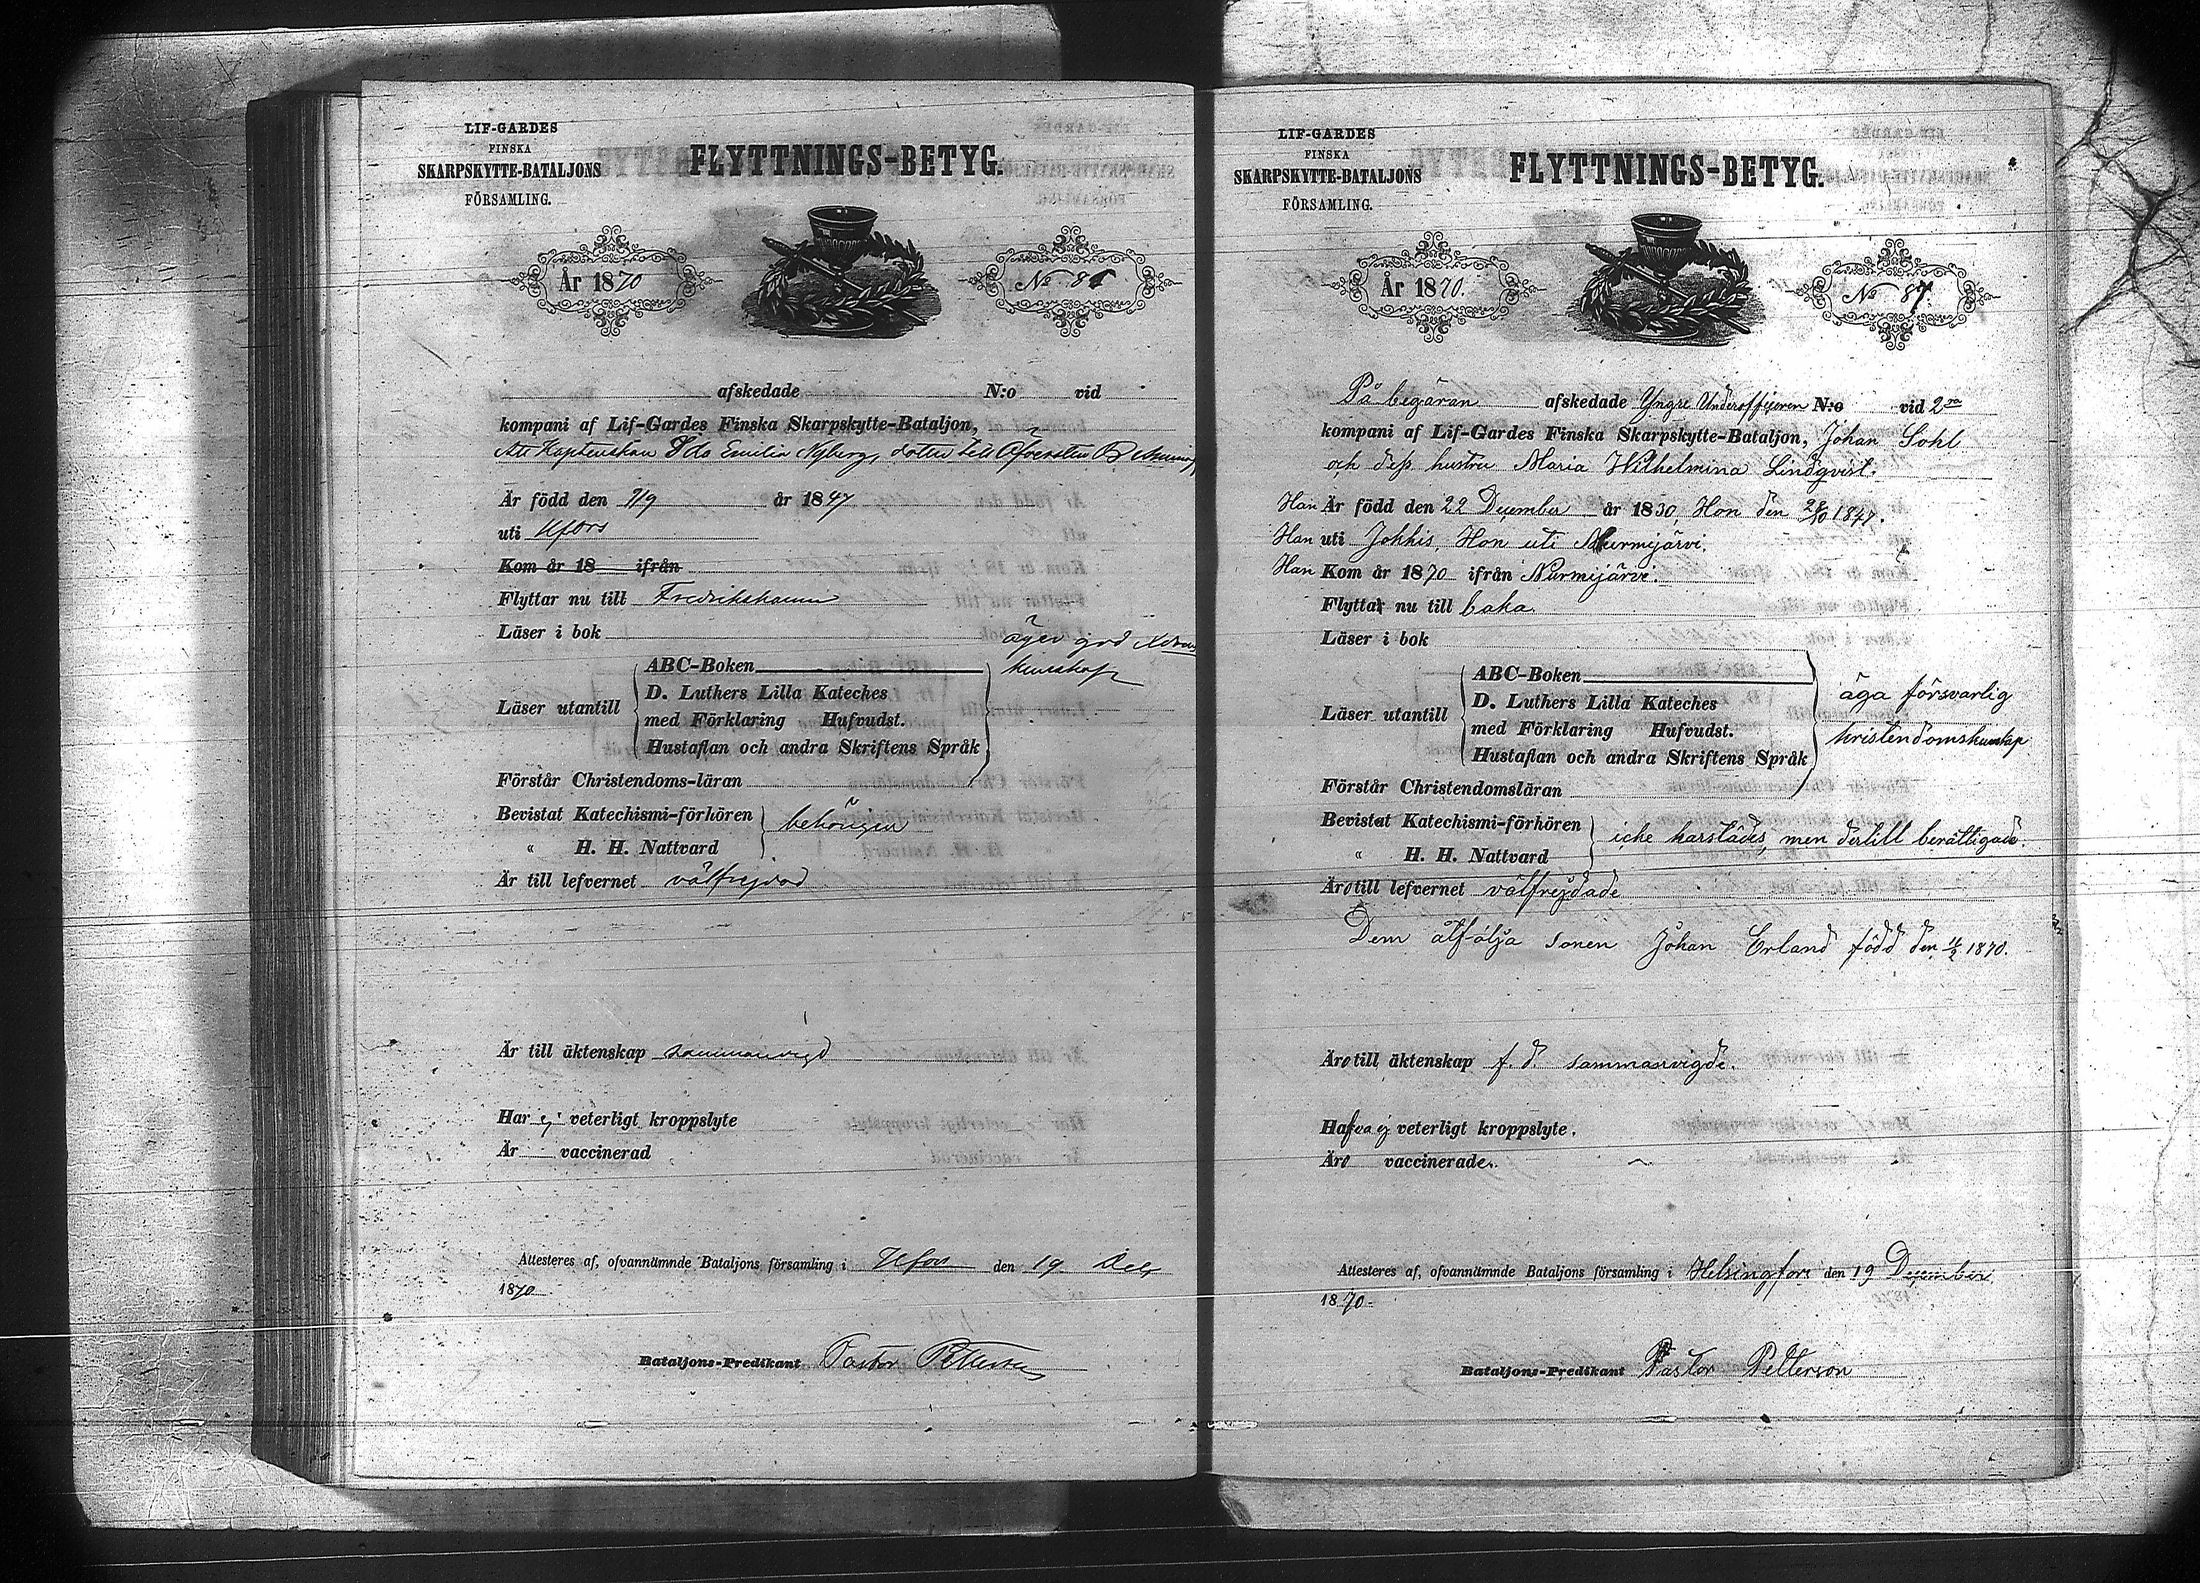 LIF-GARDES
FINSKA
SKARPSKYTTE-BATALJONS
FÖRSAMLING.
FLYTTNINGS-BETYG.
År 1870
No 86
afskedade N:o vid
kompani af Lif-Gardes Finska Skarpskytte-Bataljon,
Att Kaptenskan Ida Emilia Nyberg, dotter till Öfversten
Är född den 7/9 år 1847
uti Hfors
Kom år 18 ifrån
Flyttar nu till Fredrikshamn
Läser i bok
äger god
kunskap
Läser utantill
ABC-Boken
D. Luthers Lilla Kateches
med Förklaring Hufvudst.
Hustaflan och andra Skriftens Språk
Förstår Christendoms-läran
Bevistat Katechismi-förhören
" H. H. Nattvard
behörigen
Är till lefvernet välfrejdad
Är till äktenskap sammanvigd
Har ej veterligt kroppslyte
Är vaccinerad
Attesteres af, ofvannämnde Bataljons församling i Hfors den 19 Dec
1870
Bataljons-Predikant Pastor Petterson
LIF-GARDES
FINSKA
SKARPSKYTTE-BATALJONS
FÖRSAMLING.
FLYTTNINGS-BETYG.
År 1870.
No 87.
På begäran afskedade Yngre Underofficeren N:o vid 2ra
kompani af Lif-Gardes Finska Skarpskytte-Bataljon, Johan Sohl
och dess hustru Maria Wilhelmina Lindqvist.
Han Är född den 22 December år 1830, Hon den 1847.
Han uti Jokkis, Hon uti Nurmijärvi.
Han Kom år 1870 ifrån Nurmijärvi.
Flytta nu till baka
Läser i bok
Läser utantill
ABC-Boken
D. Luthers Lilla Kateches
med Förklaring Hufvudst.
Hustaflan och andra Skriftens Språk
äga försvarlig
kristendomskunskap
Förstår Christendomsläran
Bevistat Katechismi-förhören
" H. H. Nattvard
icke härstädes, men dertill berättigade.
Äro till lefvernet välfrejdade
Dem åtfölja sonen Johan Erland född den 1870.
Äro till äktenskap f. d. sammanvigde.
Hafva ej veterligt kroppslyte.
Äro vaccinerade.
Attesteres af, ofvannämnde Bataljons församling i Helsingfors den 19 December
1870.
Bataljons-Predikant Pastor Petterson